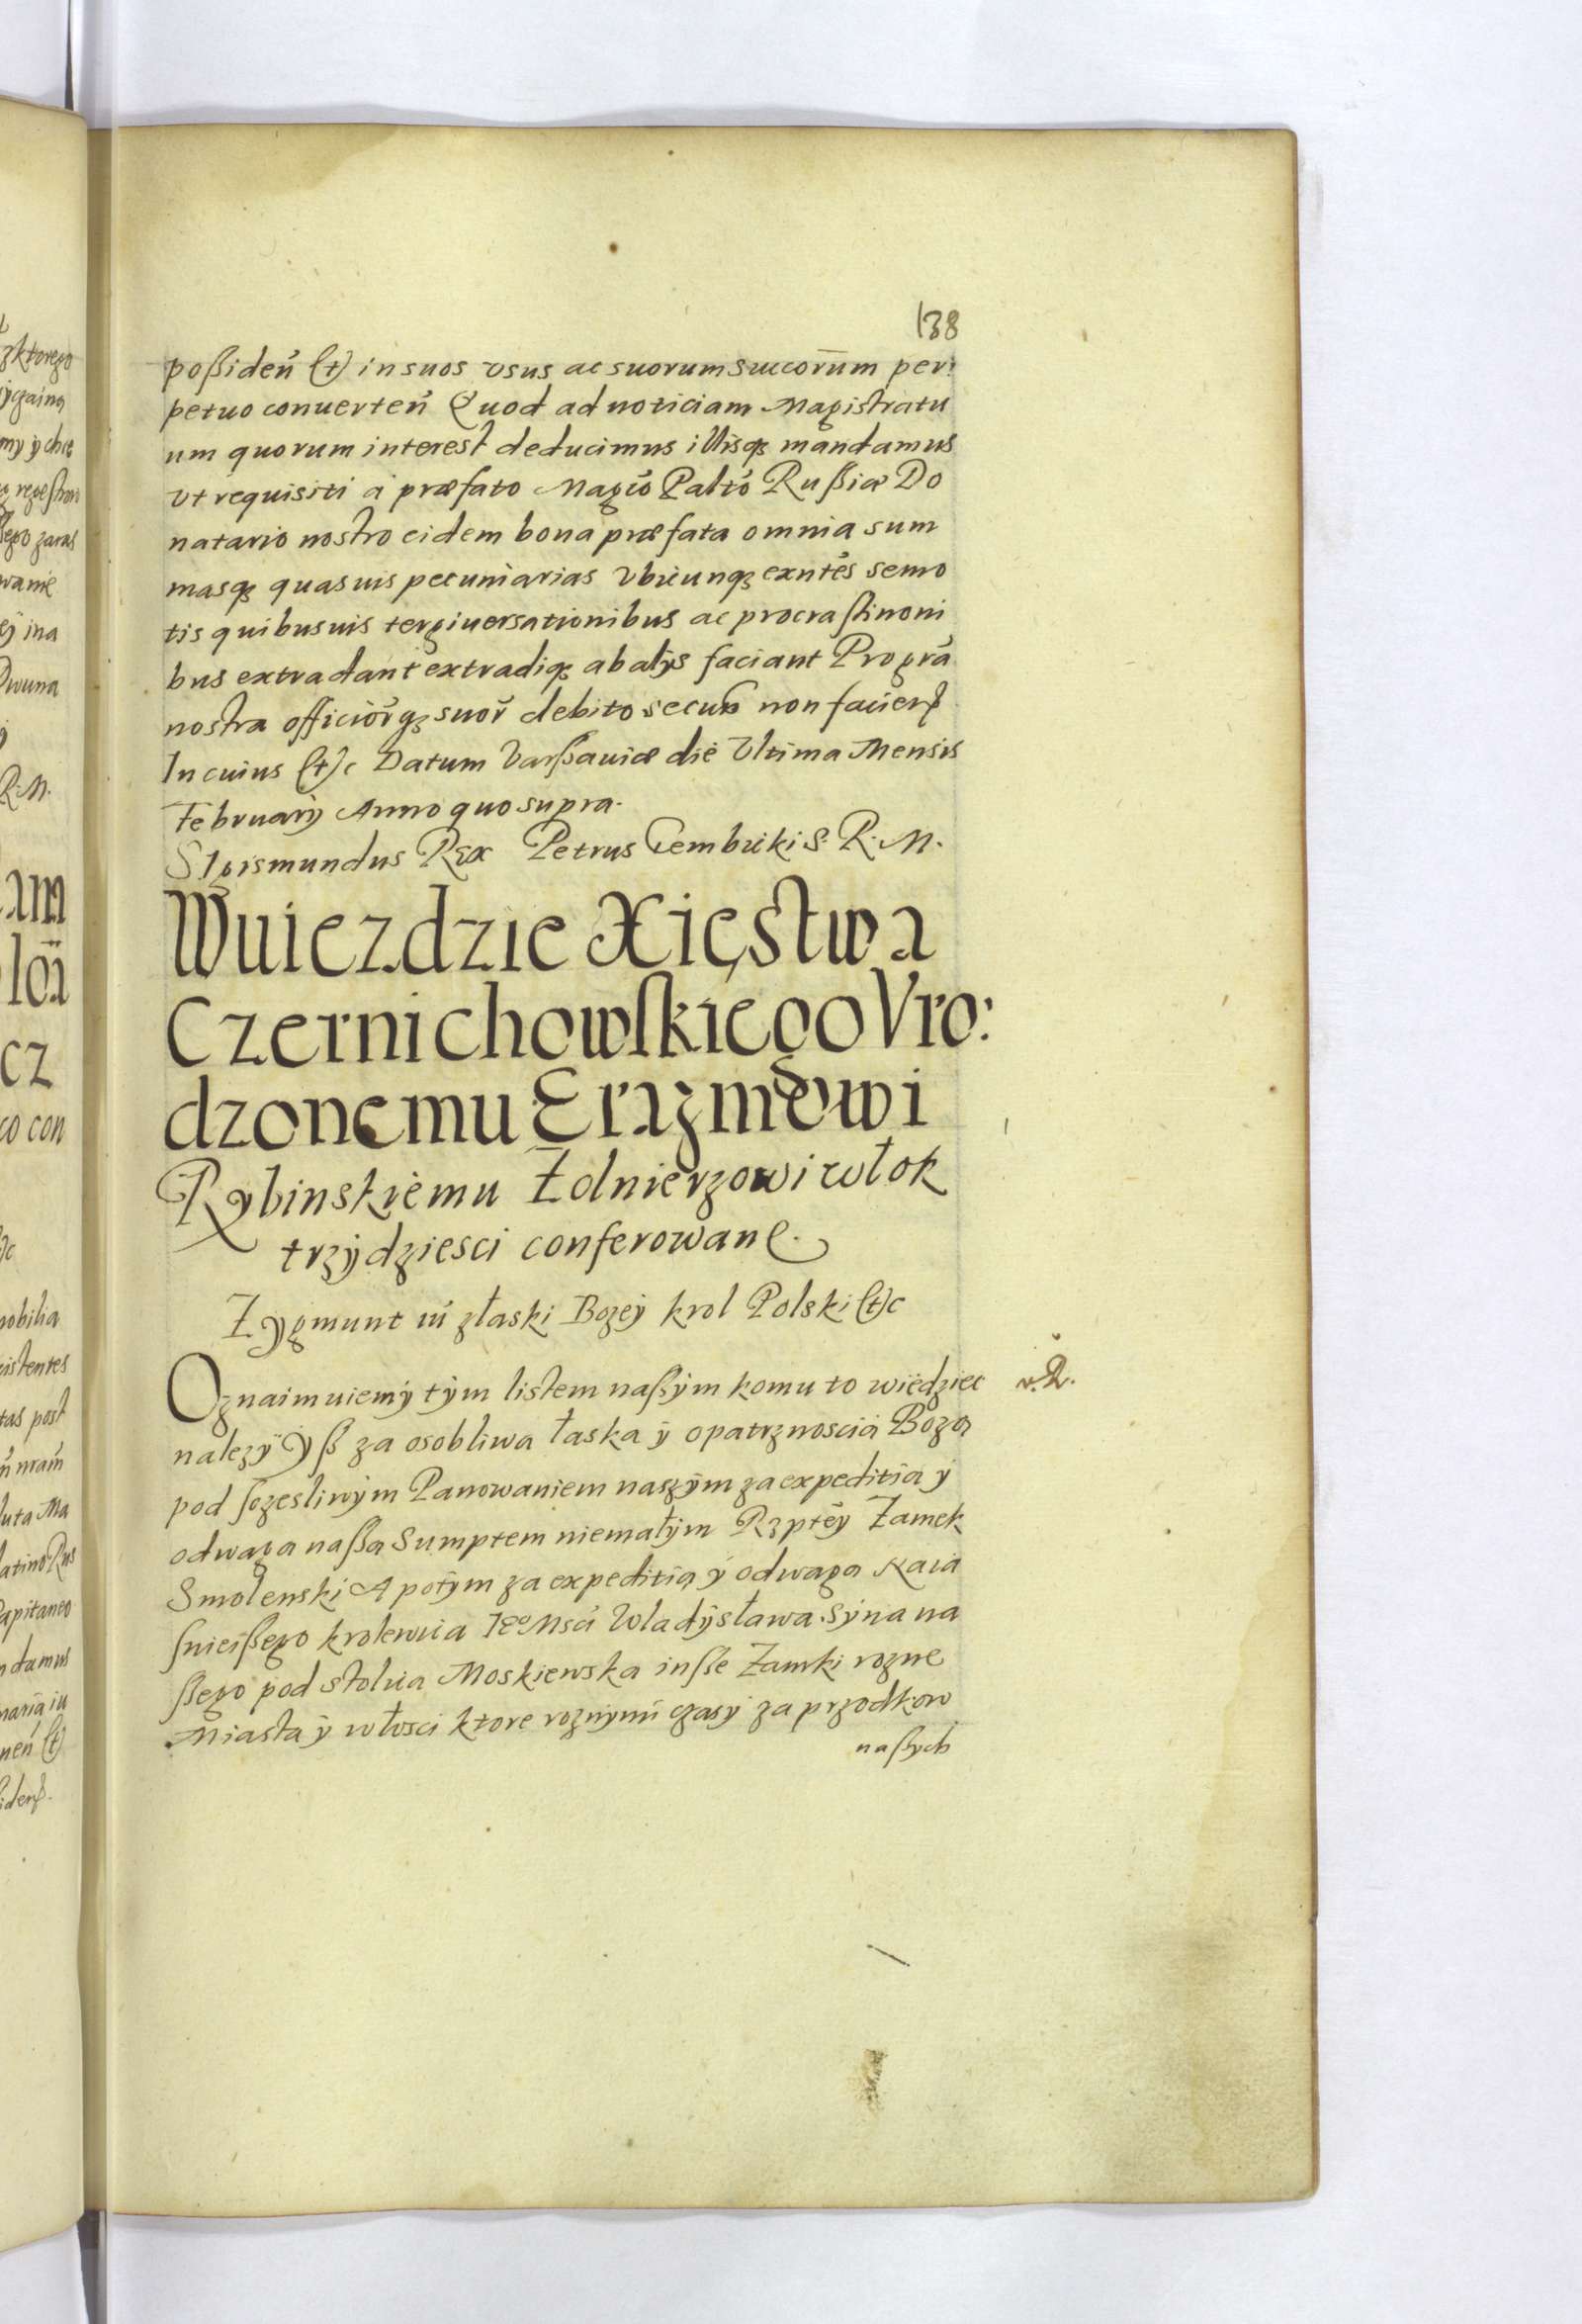 138
poßideń (t) in suos vsus ac suorum succorūm per:
petuo conuerteń Quod ad noticiam Magistratu
um quorum interest deducimus illisqȝ mandamus
vt requisiti á præfato Magcō Paltō Rußiæ Do
natario nostro eidem bona præfata omnia sum
masqȝ quasuis pecuniarias Vbicunqȝ exntēs semo
tis quibusuis tergiuersationibus ac procrastinoni
bus extradant extradiqȝ ab alijs faciant Pro gra
nostra officiorqȝ suor debito secus non facien
In cuius (t)c Datum Varßauiæ die Vltima Mensis
Februarij Anno quo supra.
Sigismundus Rex Petrus Gembicki S. R. M.
Wuiezdzie Xięstwa
Czernichowskiego Vro:
dzonemu Erazmowi
Rybinskiemu Żolnierzowi włok
trzÿdziesci conferowane.
Zygmunt iii z łaski Bozeÿ krol Polski (t)c
Oznaimuiemÿ tÿm listem naßÿm komu to wiedziec
nalezÿ Yß za osobliwa łaska ÿ opatrznoscia Bozą
pod sczesliwÿm Panowaniem naszÿm za expeditią ÿ
odwaga naßa Sumptem niemałÿm Rzptēy Zamek
Smolenski A potÿm za expeditią ÿ odwagą Naia
snieißego krolewica Je° Msci Wladÿsława Sÿna na
ßego pod stolica Moskiewska insße Zamki rozne
Miasta ÿ włosci ktore roznymi czasÿ za przodkow
naßych